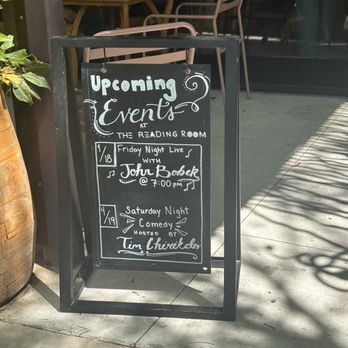 Upcoming
Events
AT
THE READING ROOM
4/18
Friday Night Live
WITH
John Bobek
@ 7:00pm
4/19
Saturday Night
Comedy
HOSTED BY
Tim